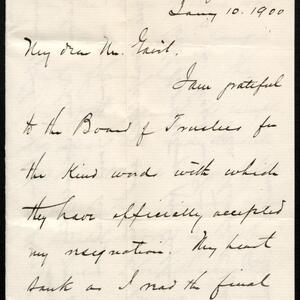 Jany 10. 1900
My dear Mr.
I am grateful
to the Board of Trustees for
the kind words with which
they have officially accepted
my resignation. My heart
sank as I read the final